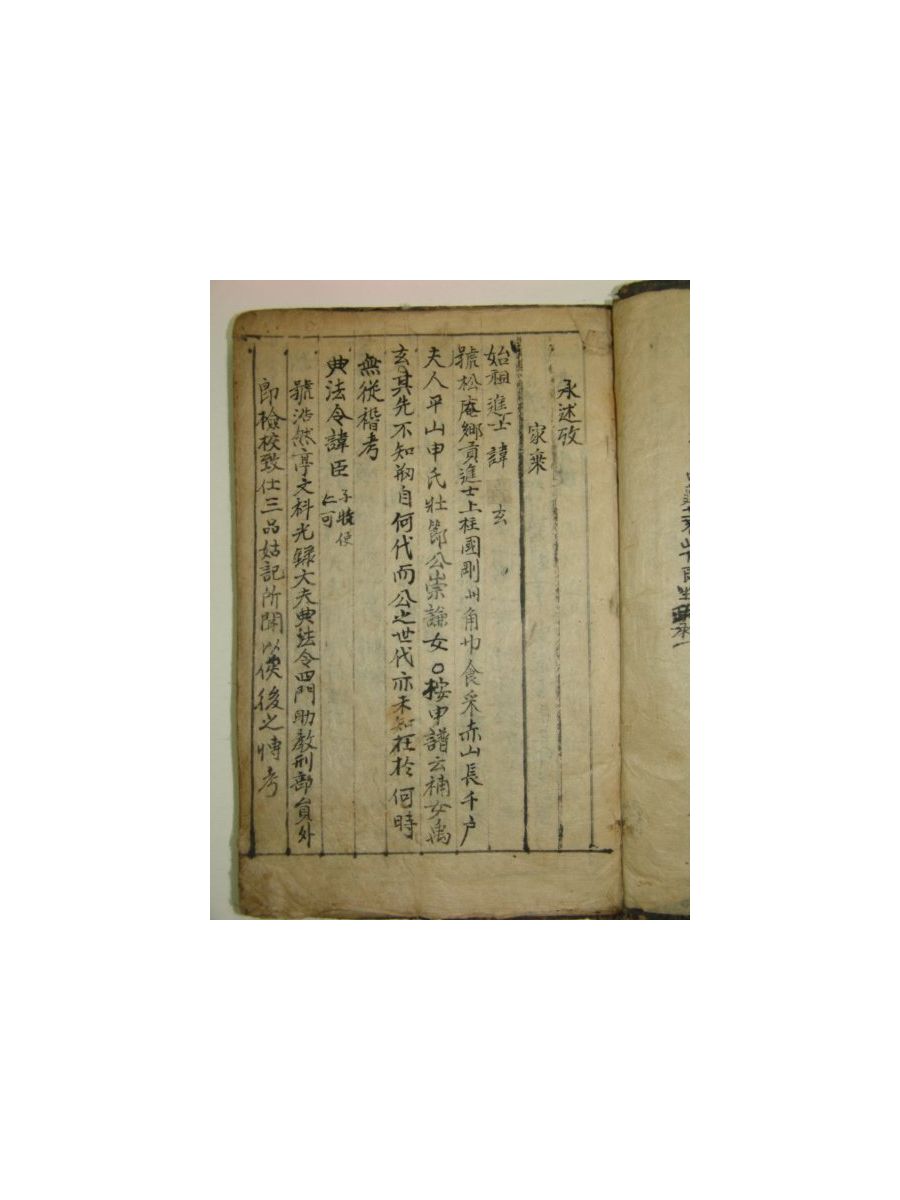 永述攷
家乗
始祖進士諱玄
號松庵鄕貢進士上柱國剛州角巾食采赤山長千户
夫人平山申氏壯節公崇謙女○按申譜云補女禹
玄其先不知刱自何代而公之世代亦未知在於何時
無從稽考
典法令諱臣
仁可
號浩然亭文科光録大夫典法令四門助敎刑部員外
郎檢校致仕三品姑記所聞以俟後之愽考